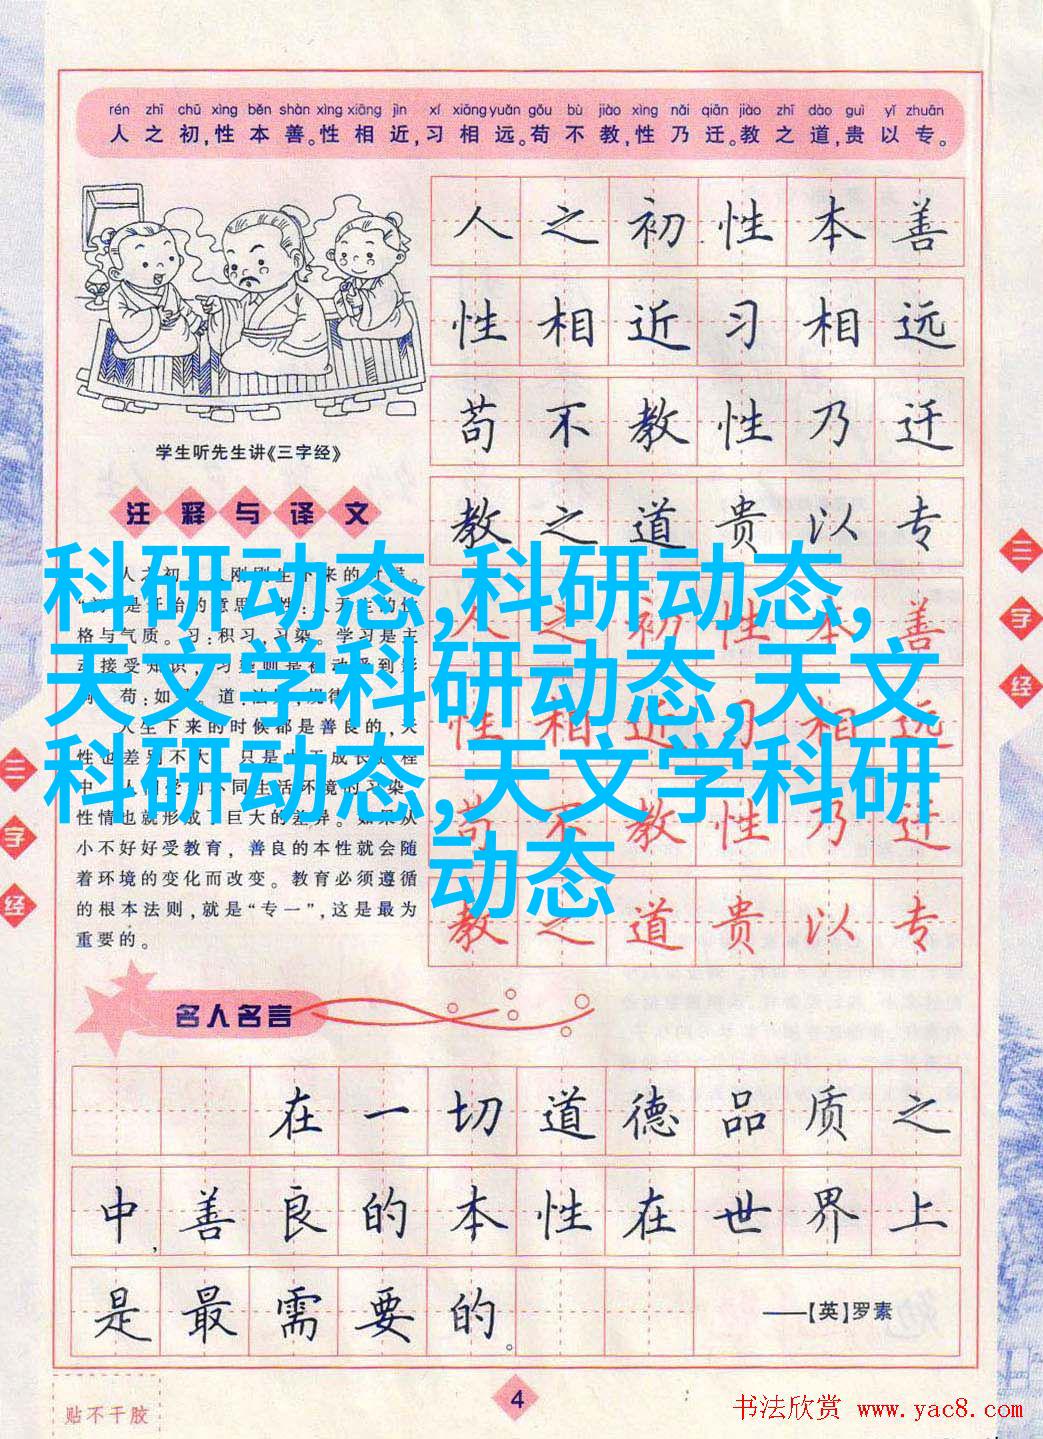 rén zhī chū xìng běn shàn xìng xiāng jìn xí xiāng yuǎn gǒu bù jiào xìng nǎi qiān jiào zhī dào guì yǐ zhuān
人之初,性本善。性相近,习相远。苟不教,性乃迁。教之道,贵以专。
人之初性本善
性相近习相远
苟不教性乃迁
教之道贵以专
学生听先生讲《三字经》
注释与译文
科研动态,科研动态,
天文学科研动态,天文
科研动态,天文学科研
动态
人之初性本善
性相近习相远
苟不教性乃迁
教之道贵以专
格与气质。习:积习,习染。学习是主
人生下来的时候都是善良的,天
性情也就形成了巨大的差异。如果从
小不好好受教育,善良的本性就会随
着环境的变化而改变。教育必须遵循
的根本法则,就是“专一”,这是最为
重要的。
三字经
三字经
名人名言
在一切道德品质之
中,善良的本性在世界上
是最需要的。
——【英】罗素
贴不干胶
4
书法欣赏 www.yac8.com